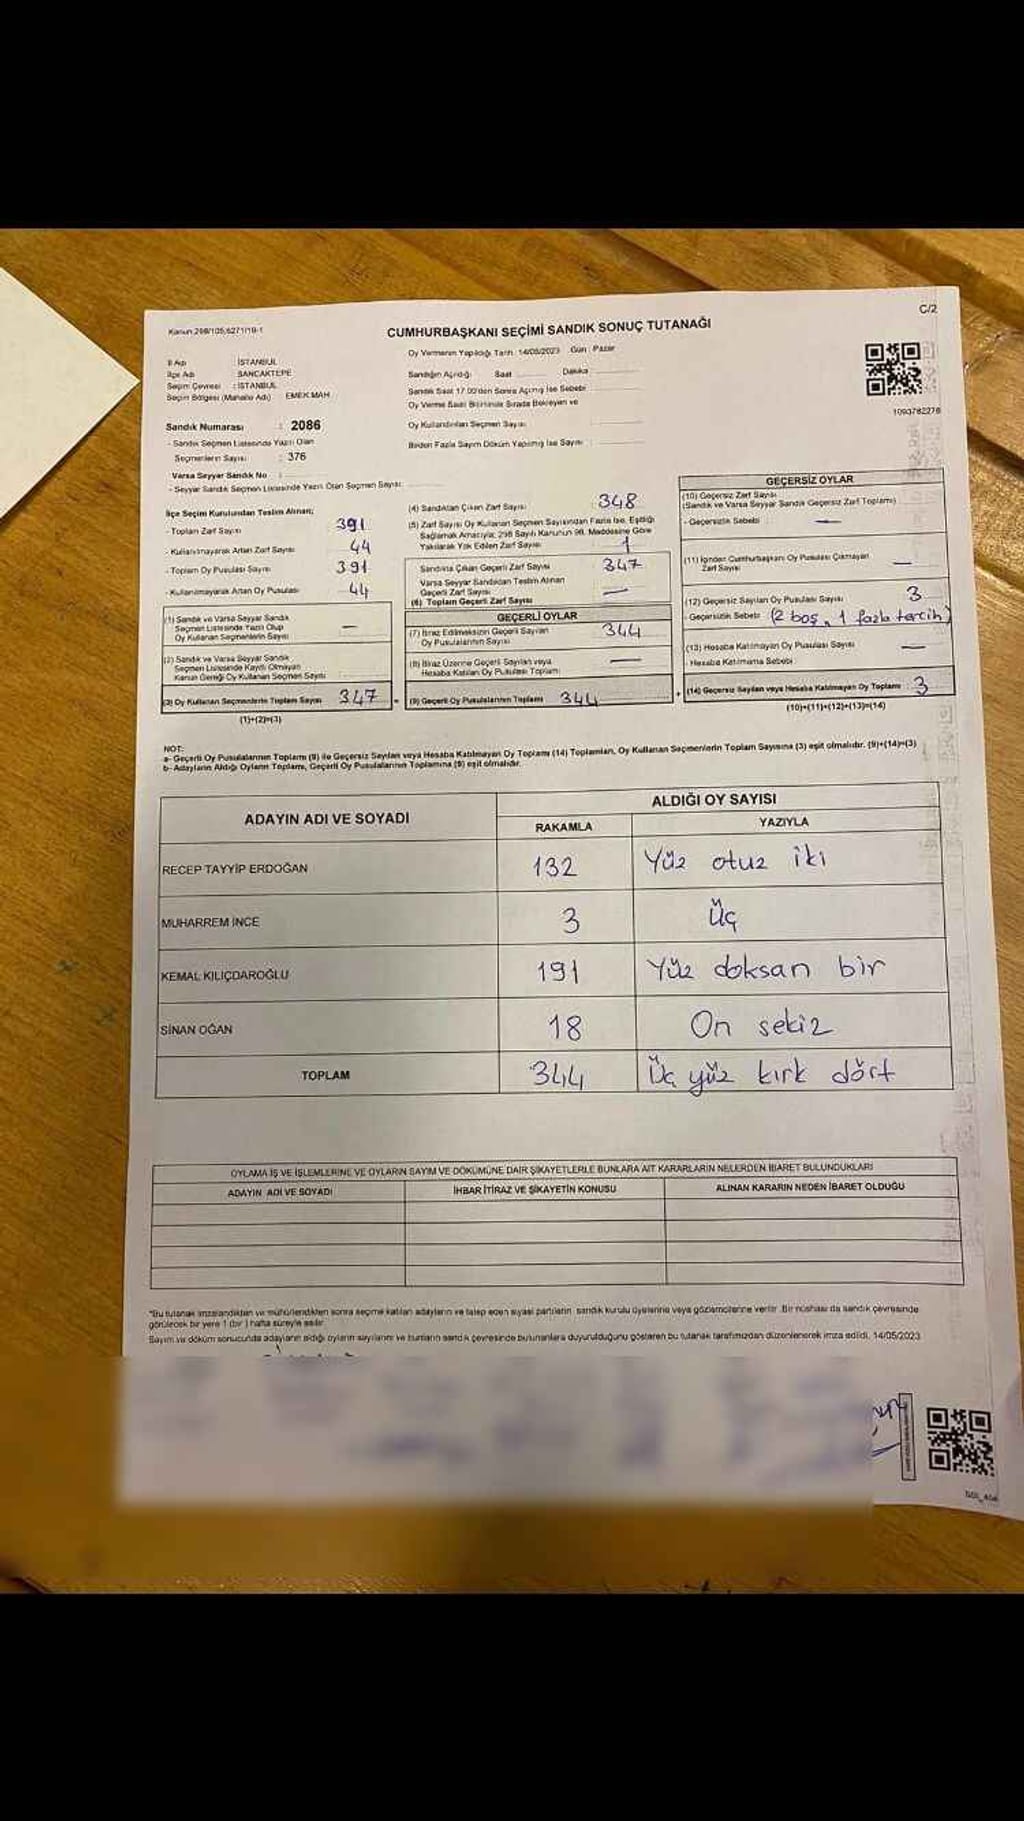 C/2
Kanun 298/105,6271/19-1
CUMHURBAŞKANI SEÇİMİ SANDIK SONUÇ TUTANAĞI
İl Adı : İSTANBUL
İlçe Adı : SANCAKTEPE
Seçim Çevresi : İSTANBUL
Seçim Bölgesi (Mahalle Adı) EMEK MAH.
Oy Vermenin Yapıldığı Tarih: 14/05/2023 Gün: Pazar
Sandığın Açıldığı: Saat Dakika
Sandık Saat 17.00'den Sonra Açılmış İse Sebebi
Oy Verme Saati Bitiminde Sırada Bekleyen ve
Oy Kullandırılan Seçmen Sayısı :
Birden Fazla Sayım Döküm Yapılmış İse Sayısı :
1093782278
Sandık Numarası : 2086
- Sandık Seçmen Listesinde Yazılı Olan
Seçmenlerin Sayısı : 376
Varsa Seyyar Sandık No :
- Seyyar Sandık Seçmen Listesinde Yazılı Olan Seçmen Sayısı:
İlçe Seçim Kurulundan Teslim Alınan;
- Toplam Zarf Sayısı 391
- Kullanılmayarak Artan Zarf Sayısı 44
- Toplam Oy Pusulası Sayısı 391
- Kullanılmayarak Artan Oy Pusulası 44
(1) Sandık ve Varsa Seyyar Sandık
Seçmen Listesinde Yazılı Olup
Oy Kullanan Seçmenlerin Sayısı —
(2) Sandık ve Varsa Seyyar Sandık
Seçmen Listesinde Kaydı Olmayan
Kanun Gereği Oy Kullanan Seçmen Sayısı
(3) Oy Kullanan Seçmenlerin Toplam Sayısı 347 =
(1)+(2)=(3)
(4) Sandıktan Çıkan Zarf Sayısı 348
(5) Zarf Sayısı Oy Kullanan Seçmen Sayısından Fazla İse, Eşitliği
Sağlamak Amacıyla; 298 Sayılı Kanunun 98. Maddesine Göre
Yakılarak Yok Edilen Zarf Sayısı 1
Sandıkta Çıkan Geçerli Zarf Sayısı 347
Varsa Seyyar Sandıktan Teslim Alınan
Geçerli Zarf Sayısı —
(6) Toplam Geçerli Zarf Sayısı
GEÇERLİ OYLAR
(7) İtiraz Edilmeksizin Geçerli Sayılan
Oy Pusulalarının Sayısı 344
(8) İtiraz Üzerine Geçerli Sayılan veya
Hesaba Katılan Oy Pusulası Toplamı —
(9) Geçerli Oy Pusulalarının Toplamı 344 +
GEÇERSİZ OYLAR
(10) Geçersiz Zarf Sayısı
(Sandık ve Varsa Seyyar Sandık Geçersiz Zarf Toplamı)
- Geçersizlik Sebebi : —
(11) İçinden Cumhurbaşkanı Oy Pusulası Çıkmayan
Zarf Sayısı —
(12) Geçersiz Sayılan Oy Pusulası Sayısı 3
- Geçersizlik Sebebi (2 boş, 1 fazla tercih)
(13) Hesaba Katılmayan Oy Pusulası Sayısı —
- Hesaba Katılmama Sebebi :
(14) Geçersiz Sayılan veya Hesaba Katılmayan Oy Toplamı : 3
(10)+(11)+(12)+(13)=(14)
NOT:
a- Geçerli Oy Pusulalarının Toplamı (9) ile Geçersiz Sayılan veya Hesaba Katılmayan Oy Toplamı (14) Toplamları, Oy Kullanan Seçmenlerin Toplam Sayısına (3) eşit olmalıdır. (9)+(14)=(3)
b- Adayların Aldığı Oyların Toplamı, Geçerli Oy Pusulalarının Toplamına (9) eşit olmalıdır.
ADAYIN ADI VE SOYADI
ALDIĞI OY SAYISI
RAKAMLA YAZIYLA
RECEP TAYYİP ERDOĞAN 132 Yüz otuz iki
MUHARREM İNCE 3 Üç
KEMAL KILIÇDAROĞLU 191 Yüz doksan bir
SİNAN OĞAN 18 On sekiz
TOPLAM 344 Üç yüz kırk dört
OYLAMA İŞ VE İŞLEMLERİNE VE OYLARIN SAYIM VE DÖKÜMÜNE DAİR ŞİKAYETLERLE BUNLARA AİT KARARLARIN NELERDEN İBARET BULUNDUKLARI
ADAYIN ADI VE SOYADI İHBAR İTİRAZ VE ŞİKAYETİN KONUSU ALINAN KARARIN NEDEN İBARET OLDUĞU
*Bu tutanak imzalandıktan ve mühürlendikten sonra seçime katılan adayların ve talep eden siyasi partilerin, sandık kurulu üyelerine veya gözlemcilerine verilir. Bir nüshası da sandık çevresinde
görülecek bir yere 1 (bir) hafta süreyle asılır.
Sayım ve döküm sonucunda adayların aldığı oyların sayılarını ve bunların sandık çevresinde bulunanlara duyurulduğunu gösteren bu tutanak tarafımızdan düzenlenerek imza edildi. 14/05/2023